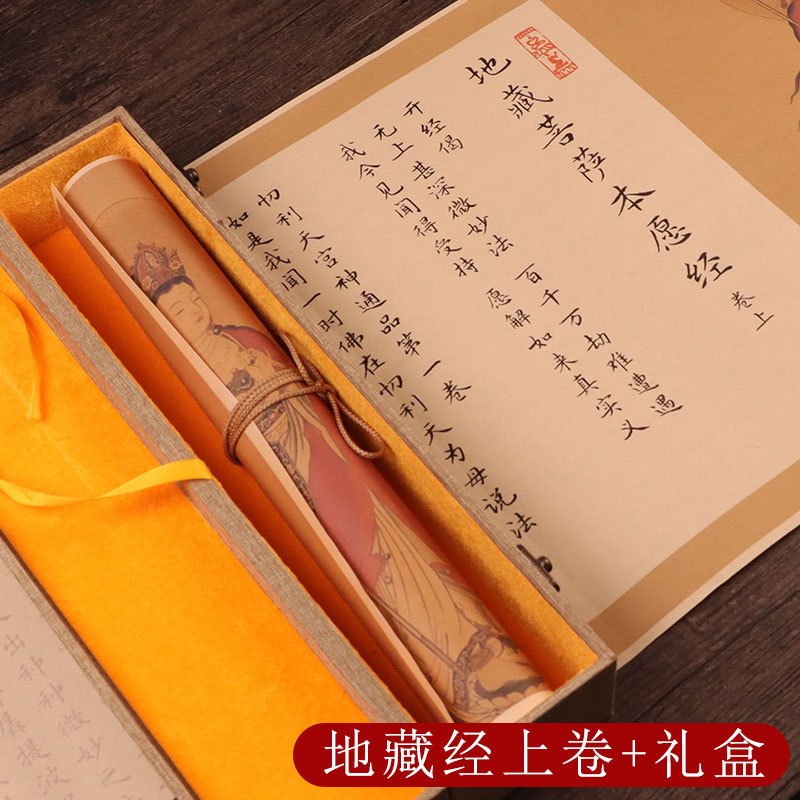 地藏菩萨本愿经 卷上
开经偈
无上甚深微妙法 百千万劫难遭遇
我今见闻得受持 愿解如来真实义
忉利天宫神通品第一卷
如是我闻一时佛在忉利天为母说法
神种微妙之
提波
地藏经上卷+礼盒